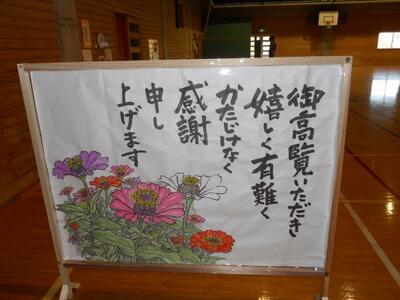 御高覧いただき
嬉しく有難く
かたじけなく
感謝
申し
上げます